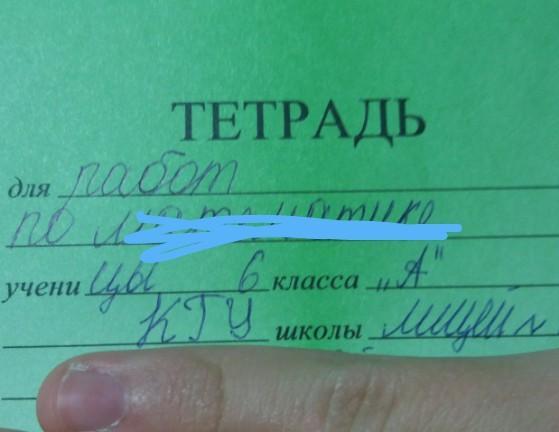 ТЕТРАДЬ
для работ
по математике
ученицы 6 класса „А"
КГУ школы лицей